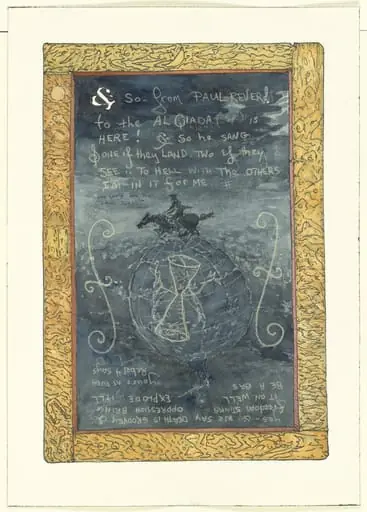 & So- from PAUL REVERE
to the AL QIADA! is
HERE! & So he SANG
ONE if they LAND. TWO if they
SEE TO HELL WITH THE OTHERS
I'M IN IT FOR ME
YES & WE SAY DEATH IS GROOVY
freedom STINKS OPPRESSION BRING
IT ON WELL EXPLODE ILL
BE A GAS YOURS AS EVER
Rebel 4 Sam